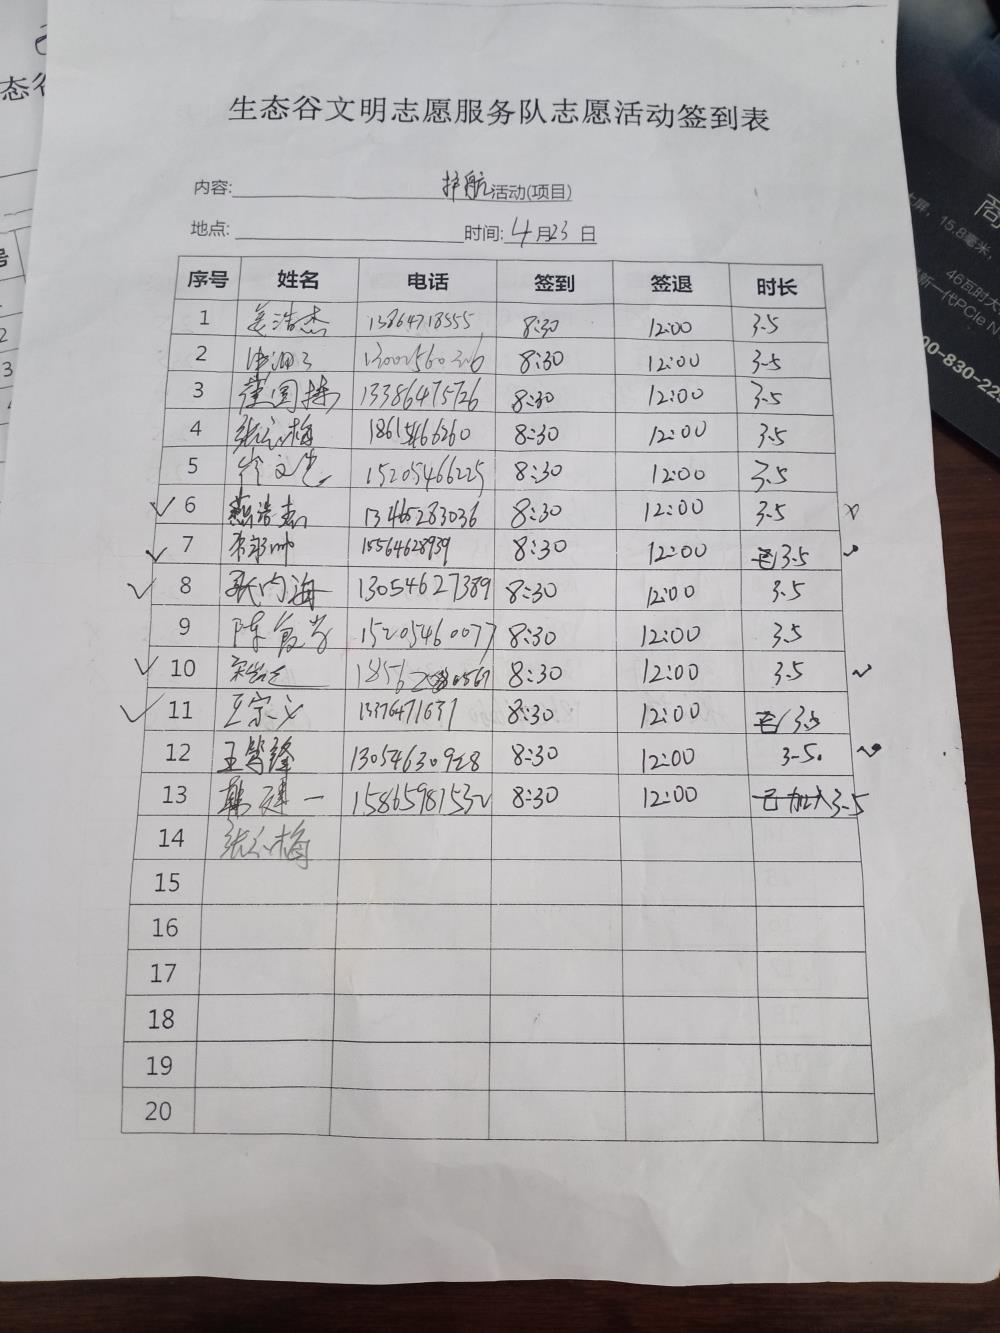 生态谷文明志愿服务队志愿活动签到表
内容: 护航活动(项目)
地点: 时间: 4月23日
序号 姓名 电话 签到 签退 时长
1 姜浩杰 13864718555 8:30 12:00 3.5
2 8:30 12:00 3.5
3 13386475726 8:30 12:00 3.5
4 张会梅 18615466260 8:30 12:00 3.5
5 15205466225 8:30 12:00 3.5
✓ 6 燕浩杰 13465283036 8:30 12:00 3.5 x
✓ 7 15564628939 8:30 12:00 3.5 ✓
✓ 8 13054627389 8:30 12:00 3.5
9 15205460077 8:30 12:00 3.5
✓ 10 8:30 12:00 3.5 ✓
✓ 11 王宗义 13376471631 8:30 12:00 3.5
12 王笃锋 13054630928 8:30 12:00 3.5
13 韩建一 15865981532 8:30 12:00 已加入 3.5
14 张会梅
15
16
17
18
19
20
商
大屏，15.8毫米，
46瓦时大
新一代PCIe N
00-830-225
态谷
号
2
3